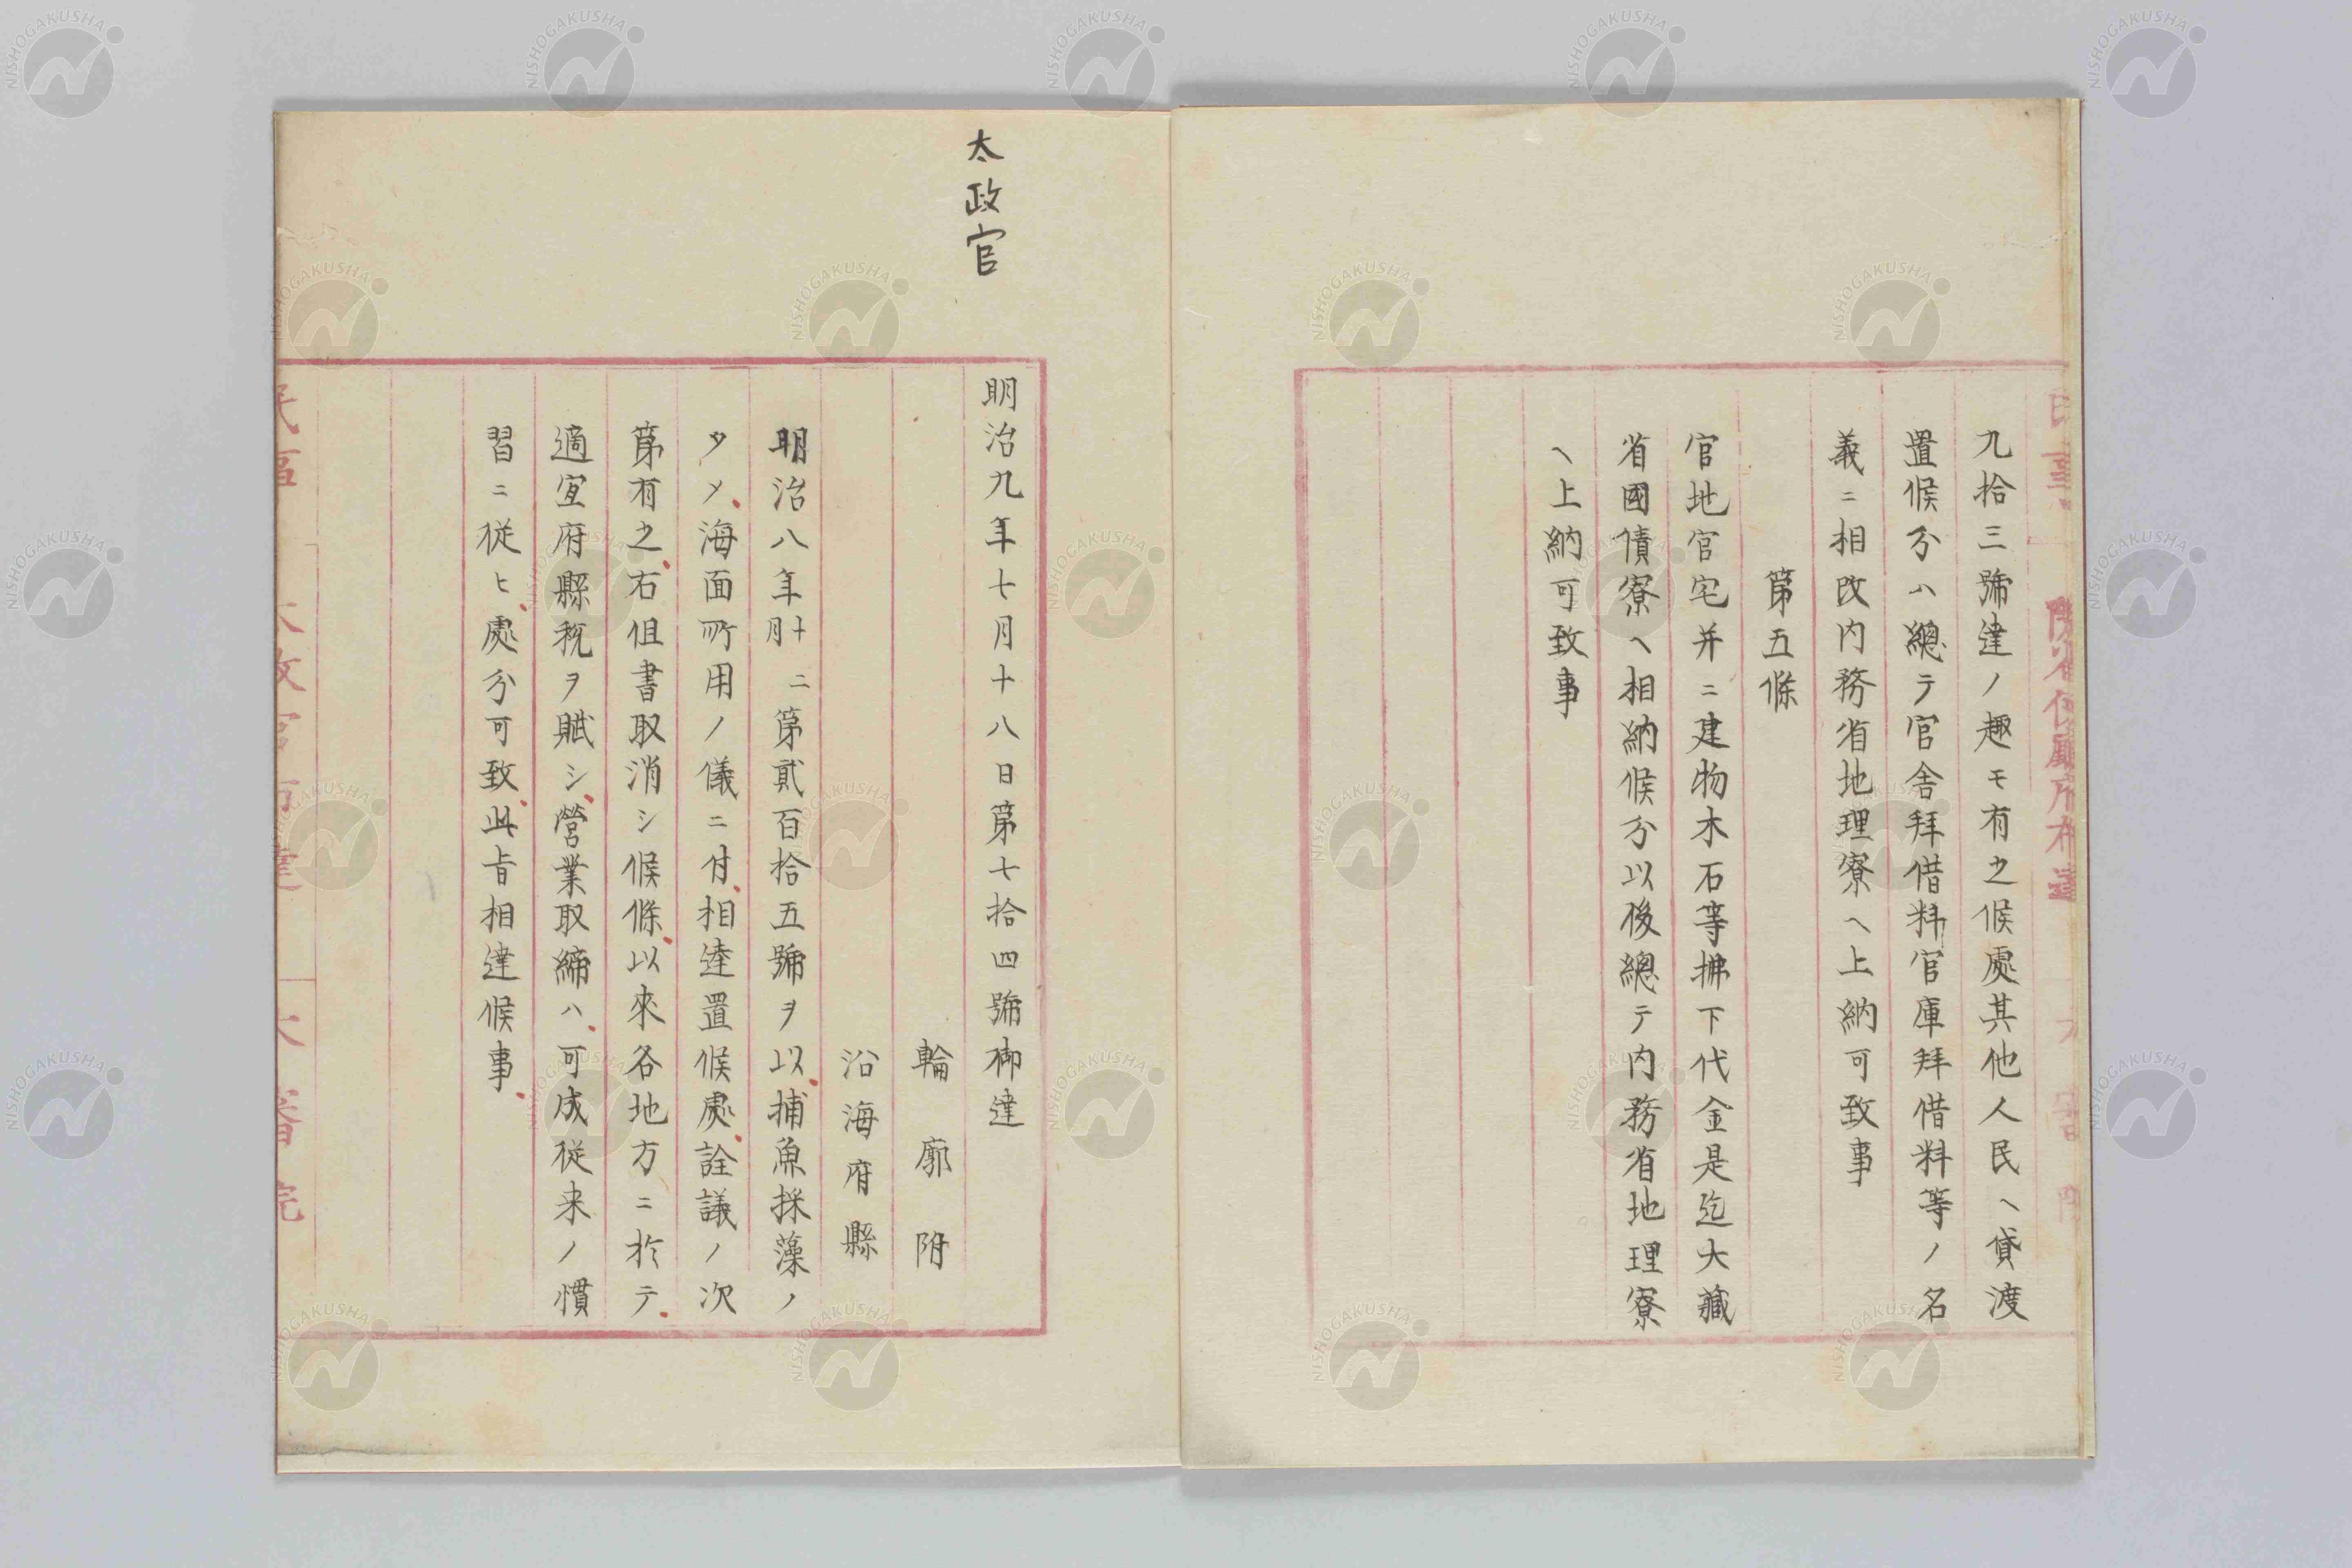 九拾三號達ノ趣モ有之候處其他人民ヘ貸渡
置候分ハ總テ官舍拜借料官庫拜借料等ノ名
義ニ相改内務省地理寮ヘ上納可致事
第五條
官地官宅并ニ建物木石等拂下代金是迄大藏
省國債寮ヘ相納候分以後總テ内務省地理寮
ヘ上納可致事
太政官
明治九年七月十八日第七拾四號御達
輪廓附
沿海府縣
明治八年十二月第貳百拾五號ヲ以捕魚採藻ノ
タメ海面所用ノ儀ニ付相達置候處詮議ノ次
第有之右但書取消シ候條以來各地方ニ於テ
適宜府縣税ヲ賦シ營業取締ハ可成従来ノ慣
習ニ従ヒ處分可致此旨相達候事
NISHOGAKUSHA